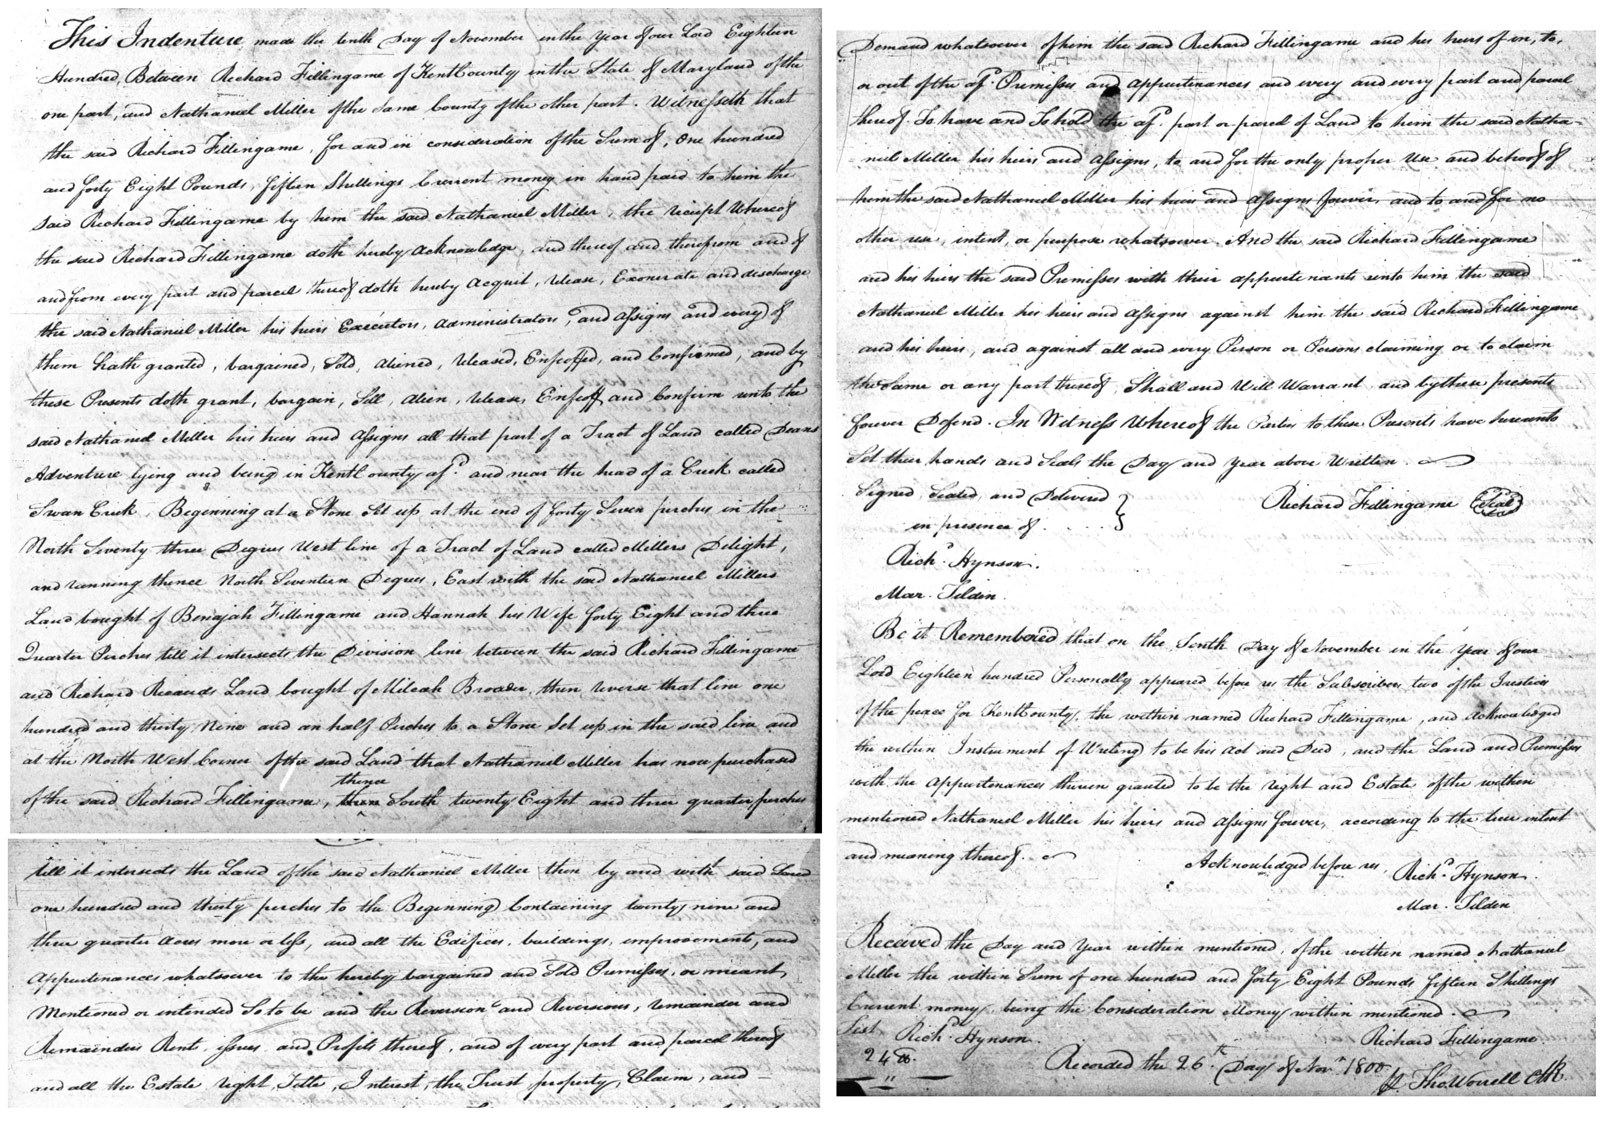 This Indenture made the tenth Day of November in the Year of our Lord Eighteen
Hundred, Between Richard Fillingame of Kent County in the State of Maryland of the
one part, and Nathaniel Miller of the same County of the other part. Witnesseth that
the said Richard Fillingame, for and in consideration of the Sum of, One hundred
and forty Eight Pounds, fifteen Shillings Current money in hand paid to him the
said Richard Fillingame by him the said Nathaniel Miller, the receipt Whereof
the said Richard Fillingame doth hereby Acknowledge, and thereof and therefrom and of
and from every part and parcel thereof doth hereby Acquit, release, Exonerate and discharge
the said Nathaniel Miller his heirs Executors, Administrators, and Assigns and every of
them hath granted, bargained, Sold, aliened, released, Enfeoffed, and Confirmed, and by
these Presents doth grant, bargain, Sell, alien, release, Enfeoff and Confirm unto the
said Nathaniel Miller his heirs and Assigns all that part of a Tract of Land called Deans
Adventure lying and being in Kent County afd. and near the head of a Creek called
Swan Creek, Beginning at a Stone Set up at the end of forty Seven perches in the
North Seventy three Degrees West line of a Tract of Land called Millers Delight,
and running thence North Seventeen Degrees, East with the said Nathaniel Millers
Land bought of Benajah Fillingame and Hannah his Wife forty Eight and three
Quarter Perches till it intersects the Division line between the said Richard Fillingame
and Richard Ricauds Land bought of Mileah Broader, then reverse that line one
hundred and thirty Nine and an half Perches to a Stone Set up in the said line and
at the North West Corner of the said Land that Nathaniel Miller has now purchased
of the said Richard Fillingame, then thence South twenty Eight and three quarter perches
till it intersects the Land of the said Nathaniel Miller then by and with said Land
one hundred and thirty perches to the Beginning Containing twenty nine and
three quarter Acres more or less, and all the Edifices, buildings, improvements, and
Appurtenances whatsoever to the hereby bargained and Sold Premisses, or meant,
Mentioned or intended So to be and the Reversion and Reversions, remainder and
Remainders Rent, issues and Profits thereof, and of every part and parcel thereof
and all the Estate right, Title, Interest, the Trust property, Claim, and
Demand whatsoever of him the said Richard Fillingame and his heirs of in, to,
or out of the afd. Premisses and Appurtenances and every and every part and parcel
thereof. To have and To hold the afd. part or parcel of Land to him the said Natha-
niel Miller his heirs and Assigns, to and for the only proper Use and behoof of
him the said Nathaniel Miller his heirs and Assigns forever, and to and for no
other use, intent, or purpose whatsoever. And the said Richard Fillingame
and his heirs the said Premisses with their appurtenants unto him the said
Nathaniel Miller his heirs and Assigns against him the said Richard Fillingame
and his heirs, and against all and every Person or Persons claiming or to claim
the Same or any part thereof, Shall and Will Warrant, and by these presents
forever Defend. In Witness Whereof the Parties to these Presents have hereunto
Set their hands and Seals the Day and Year above Written.
Signed, Sealed, and Delivered } Richard Fillingame Seal
in presence of . . . . .
Richd. Hynson.
Mar. Tilden.
Be it Remembered that on the Tenth Day of November in the Year of our
Lord Eighteen hundred Personally appeared before us the Subscribers two of the Justices
of the peace for Kent County, the within named Richard Fillingame, and Acknowledged
the within Instrument of Writing to be his Act and Deed, and the Land and Premisses
with the Appurtenances therein granted to be the right and Estate of the within
mentioned Nathaniel Miller his heirs and Assigns forever, according to the true intent
and meaning thereof. Acknowledged before us, Richd. Hynson.
Mar. Tilden
Received the Day and Year within mentioned, of the within named Nathaniel
Miller the within Sum of one hundred and forty Eight Pounds fifteen Shillings
Current money, being the Consideration Money within mentioned.
Test Richd. Hynson. Richard Fillingame
24
Recorded the 26th Day of Novr. 1800. p Tho Worrell Clk